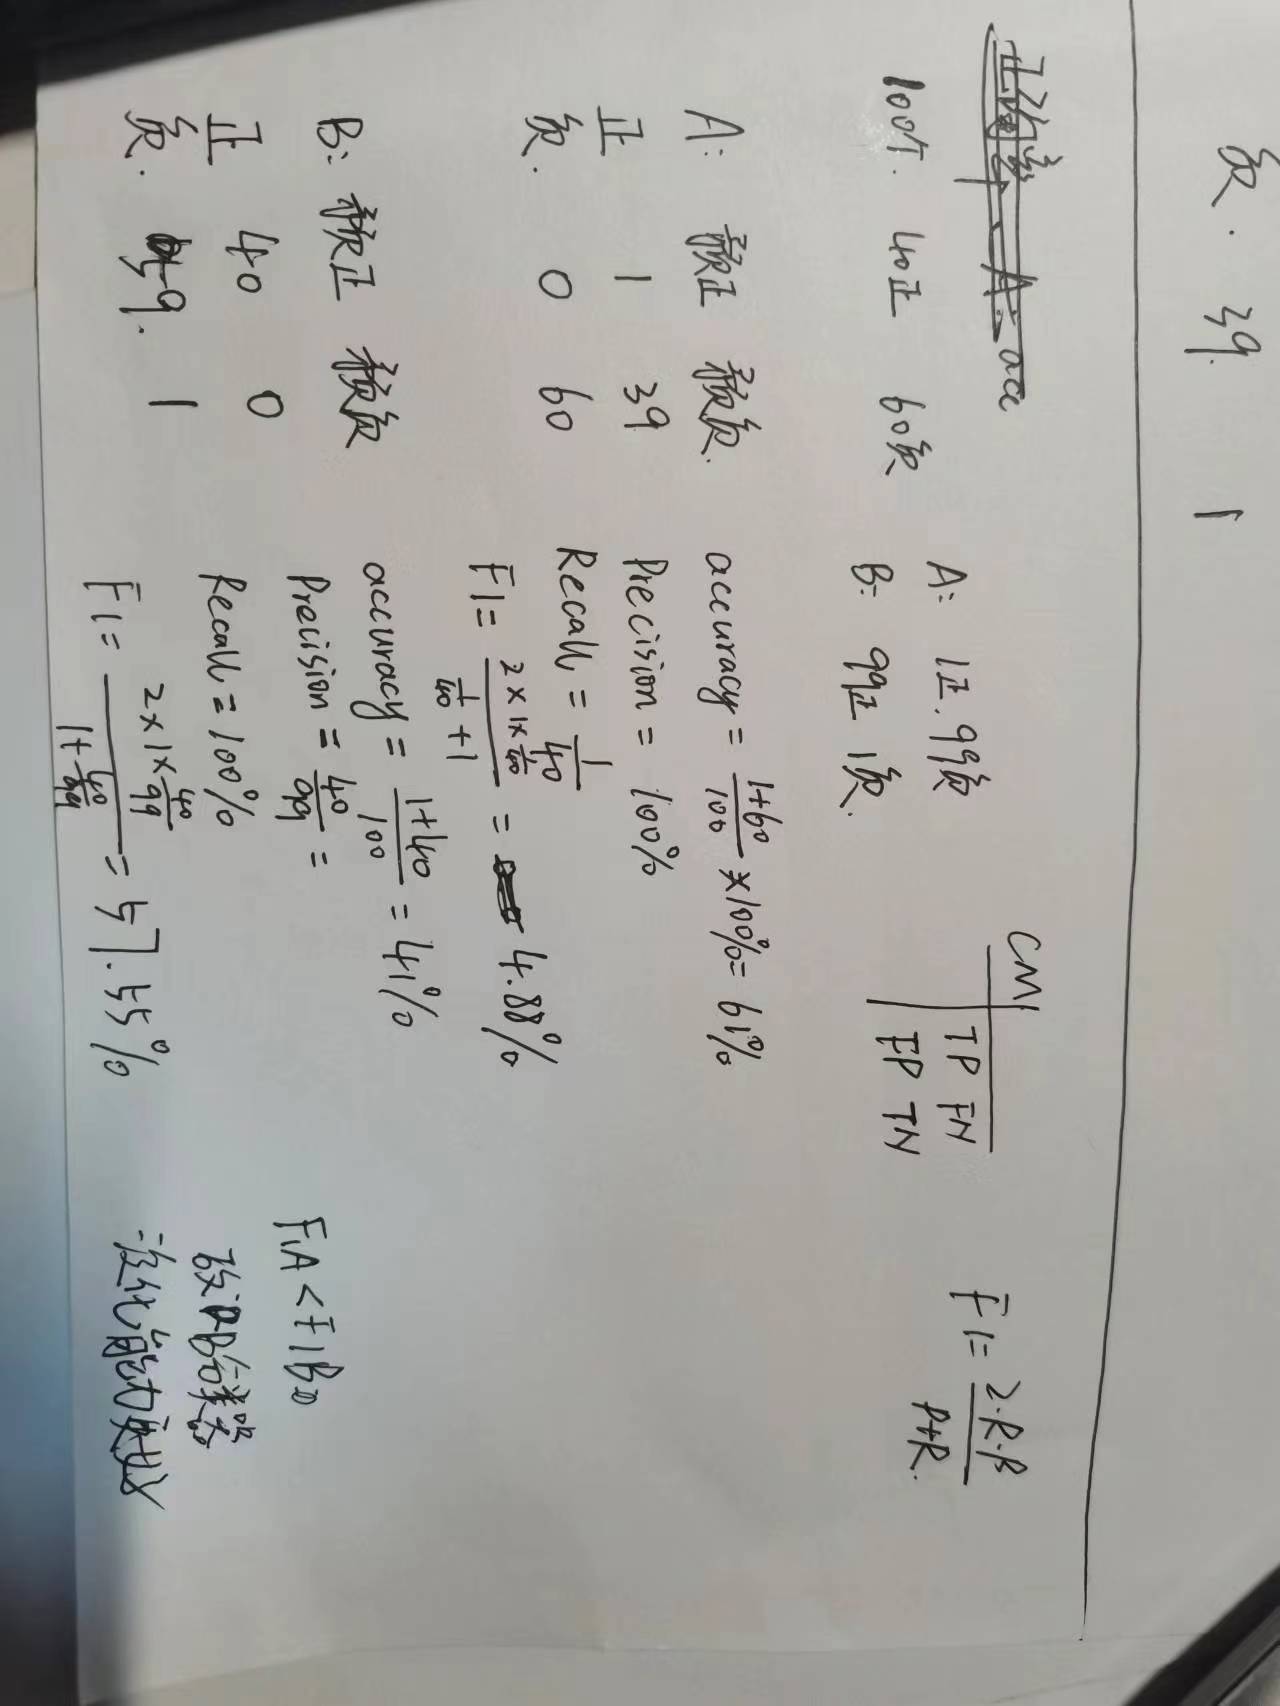 负. 39. 1
正确率 A: acc
100个. 40正 60负
A: 1正. 99负
B: 99正 1负.
CM
TP FN
FP TN
F1= 2·R·P / P+R.
A: 预正 预负.
正 1 39
负. 0 60
accuracy = 1+60 / 100 ×100%= 61%
Precision = 100%
Recall = 1/40
F1= 2×1×1/40 / 1/40 +1 = 4.88%
B: 预正 预负
正 40 0
负. 59. 1
accuracy = 1+40 / 100 = 41%
Precision = 40/99 =
Recall = 100%
F1= 2×1×40/99 / 1+40/99 = 57.55%
F1A<F1B。
故 B分类器
泛化能力更好